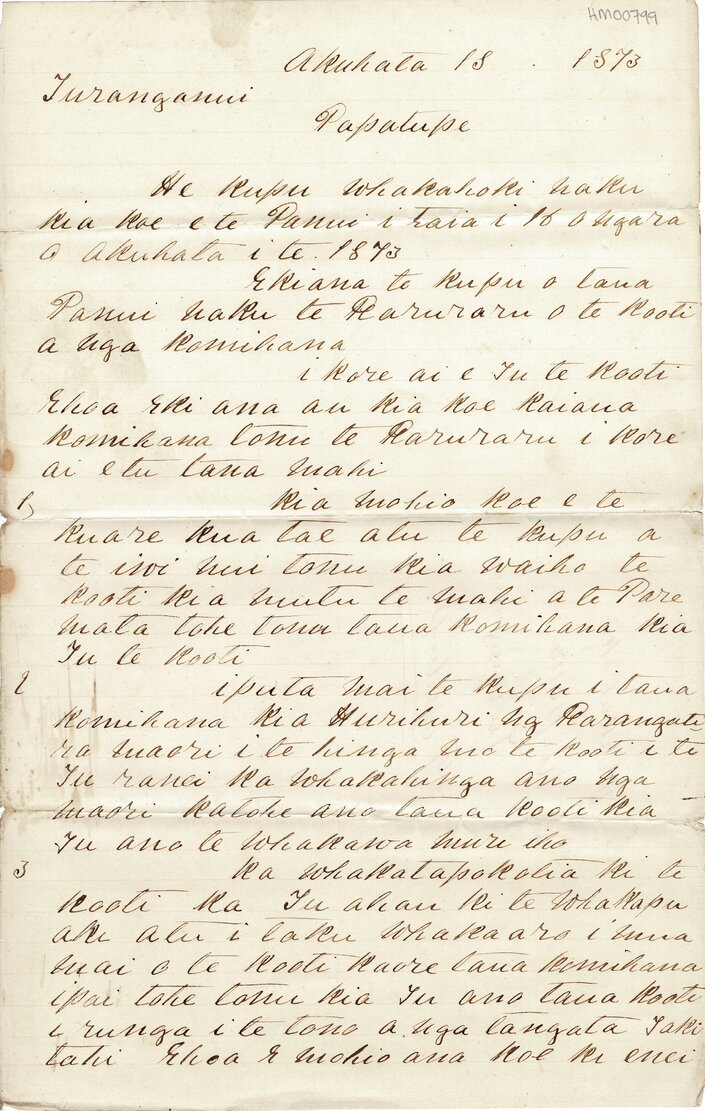 HM00799
Akuhata 18 . 1873
Turanganui
Papatupe
He kupu whakahoki naku
kia koe e te Panui i taia i 16 o ngara
o Akuhata i te . 1873
Ekiana te kupu o taua
Panui naku te Raruraru o te kooti
a nga komihana
i kore ai e Tu te kooti
Ehoa Eki ana au kia koe kaiana
komihana tonu te Raruraru i kore
ai etu tana mahi
1, kia mohio koe e te
kuare kua tae atu te kupu a
te iwi nui tonu kia waiho te
kooti kia mutu te mahi a te Pare
mata tohe tonu taua komihana kia
Tu te kooti
2 iputa mai te kupu i taua
komihana kia Hurihuri ng Rarangati
ra maori i te hinga mo te kooti i te
Tu ranei ka whakahinga ano nga
maori katohe ano taua kooti kia
Tu ano te whakawa muri iho
3 ka whakatapokotia ki te
kooti ka Tu ahau ki te whakapu
aki atu i taku whakaaro i mua
mai o te kooti kaore taua komihana
ipai tohe tonu kia Tu ano taua kooti
i runga i te tono a nga tangata Taki
tahi Ehoa E mohio ana koe ki enei